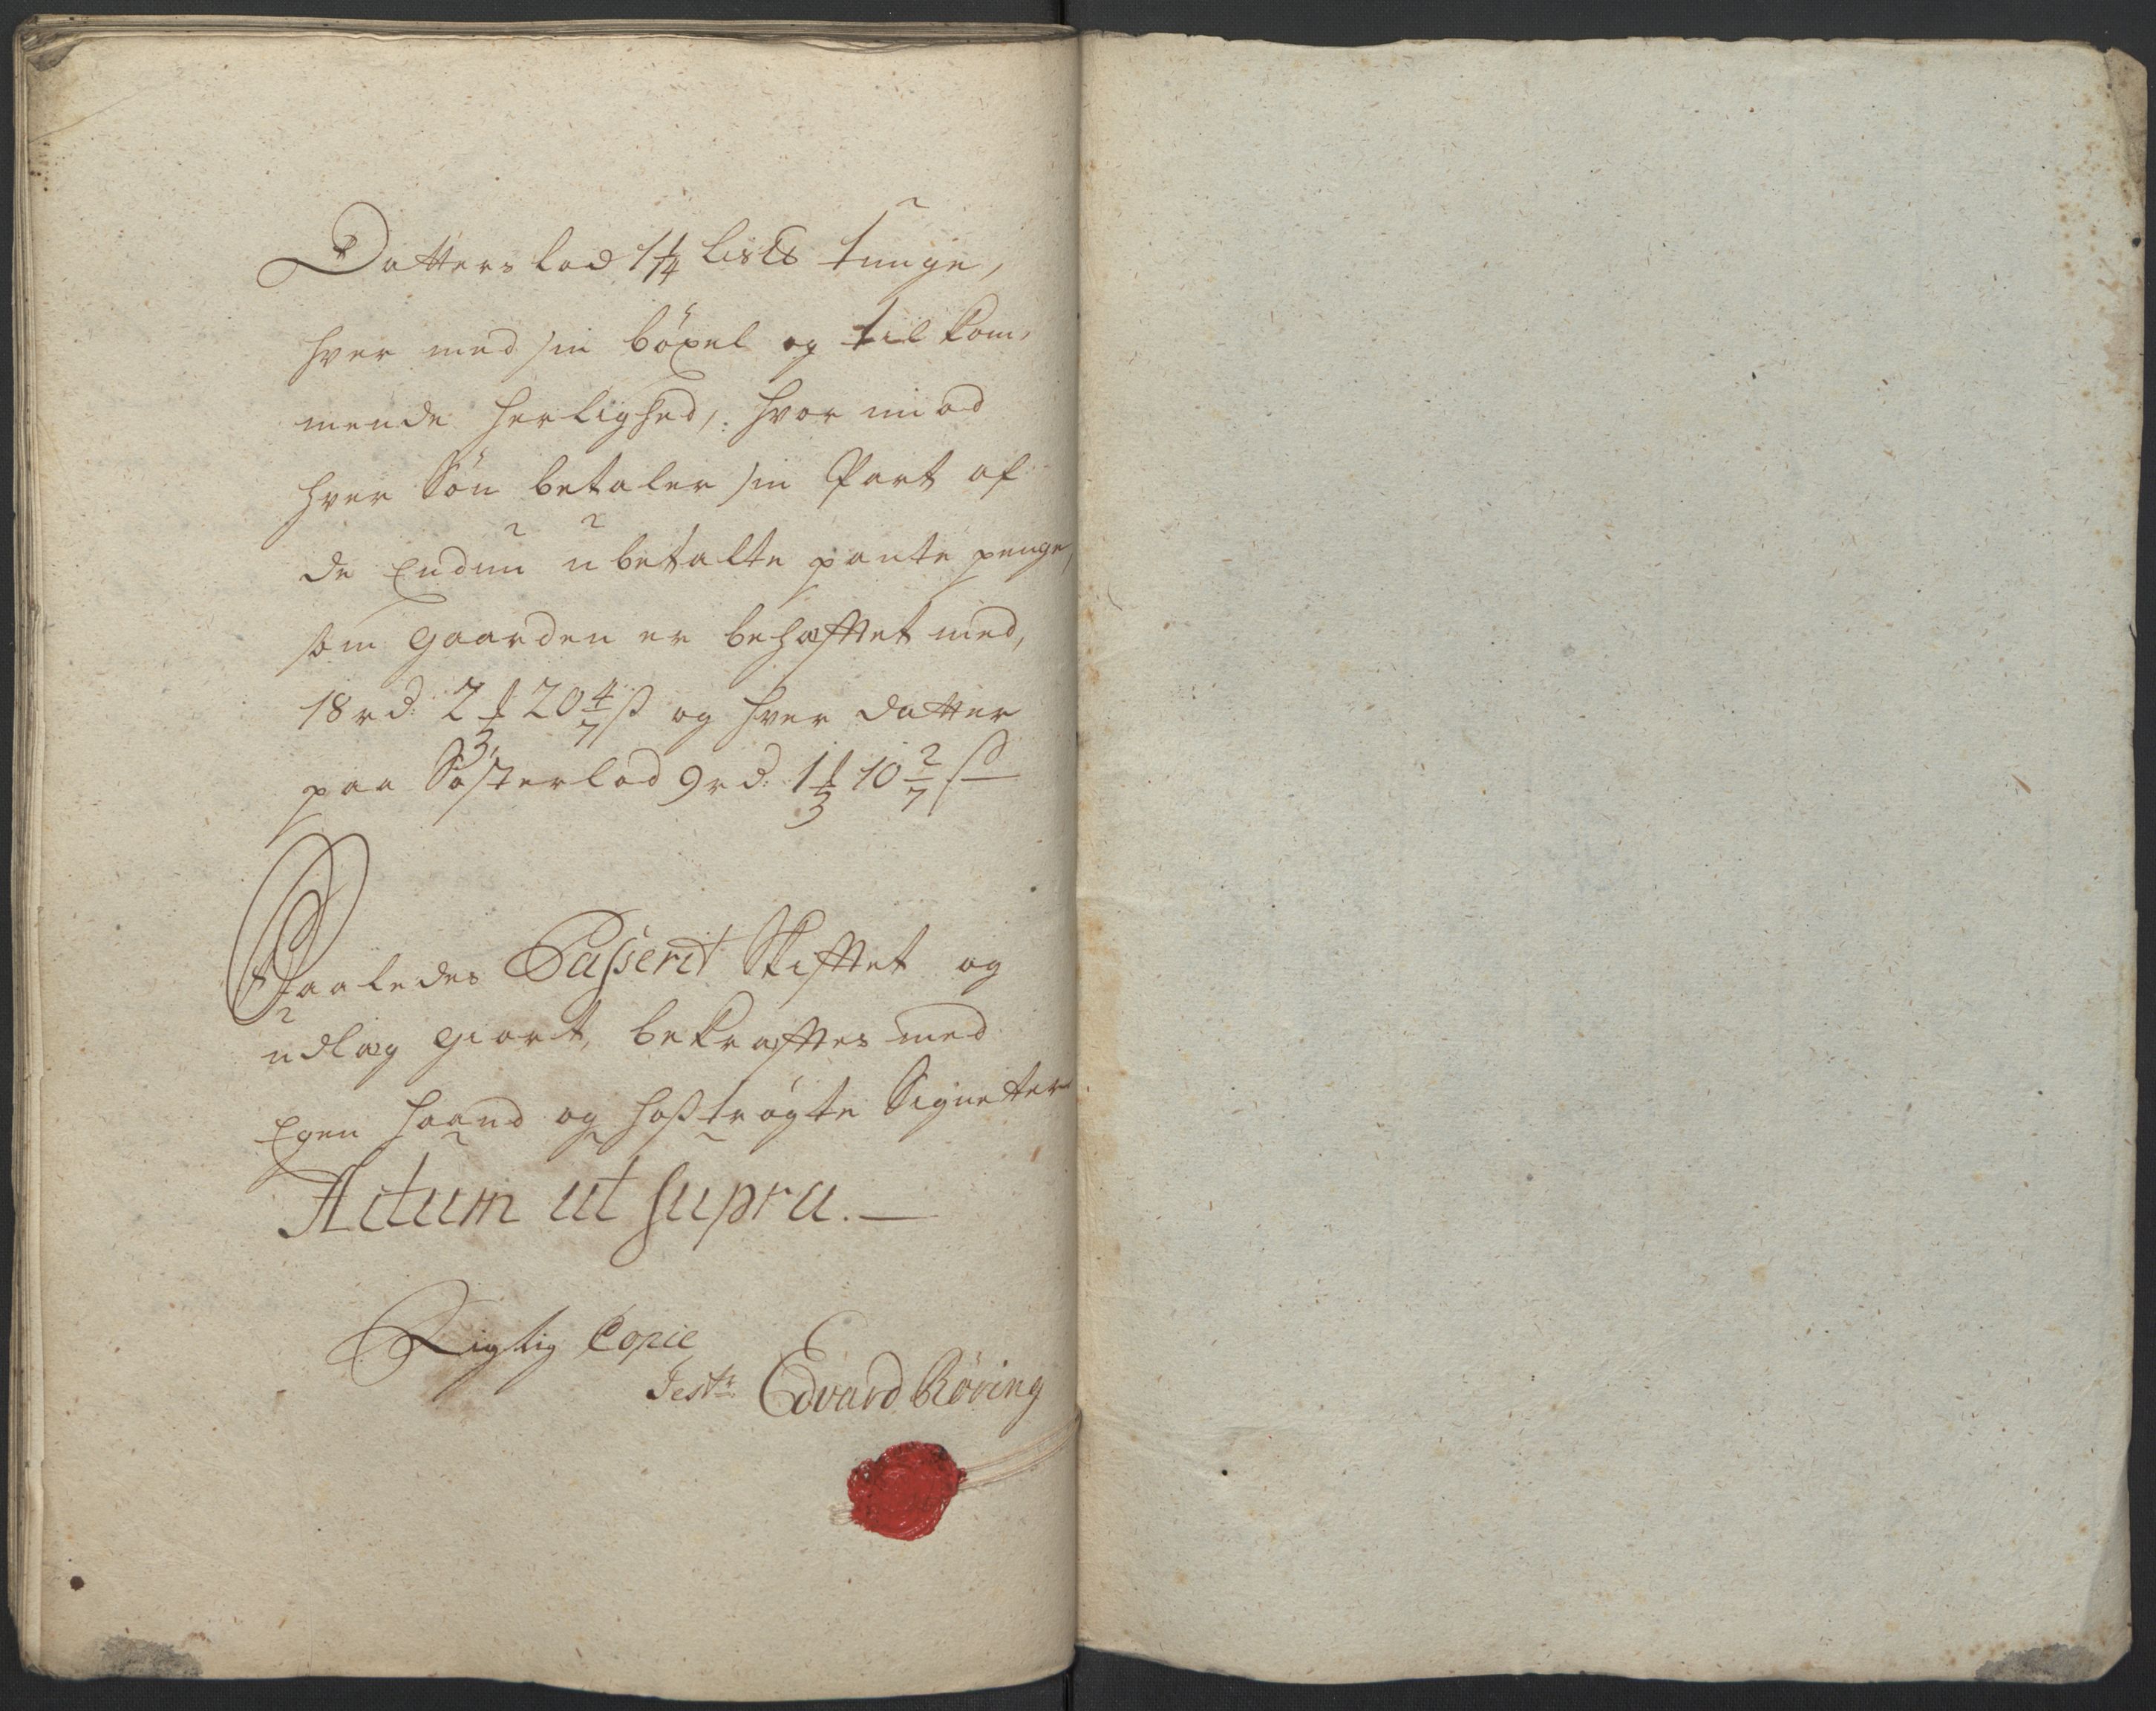 Datters lod 1 1/14 Lis℔ tunge,
hver med sin böxel og tilkom-
mende herlighed,: hvor imod
hver Søn betaler sin Part af
de Endnu ubetalte pante penge,
som Gaarden er behæfftet med,
18 rd: 2 ʄ 20 4/7 ß og hver datter
paa Søsterlod 9 rd: 1 ʄ 10 2/7 ß
Saaledes Passerit Skifftet og
udlæg giort, bekræfftes med
Egen haand og hoßtrögte Signetter
Actum ut supra. —
Rigtig Copie
Test: Edvard Röring